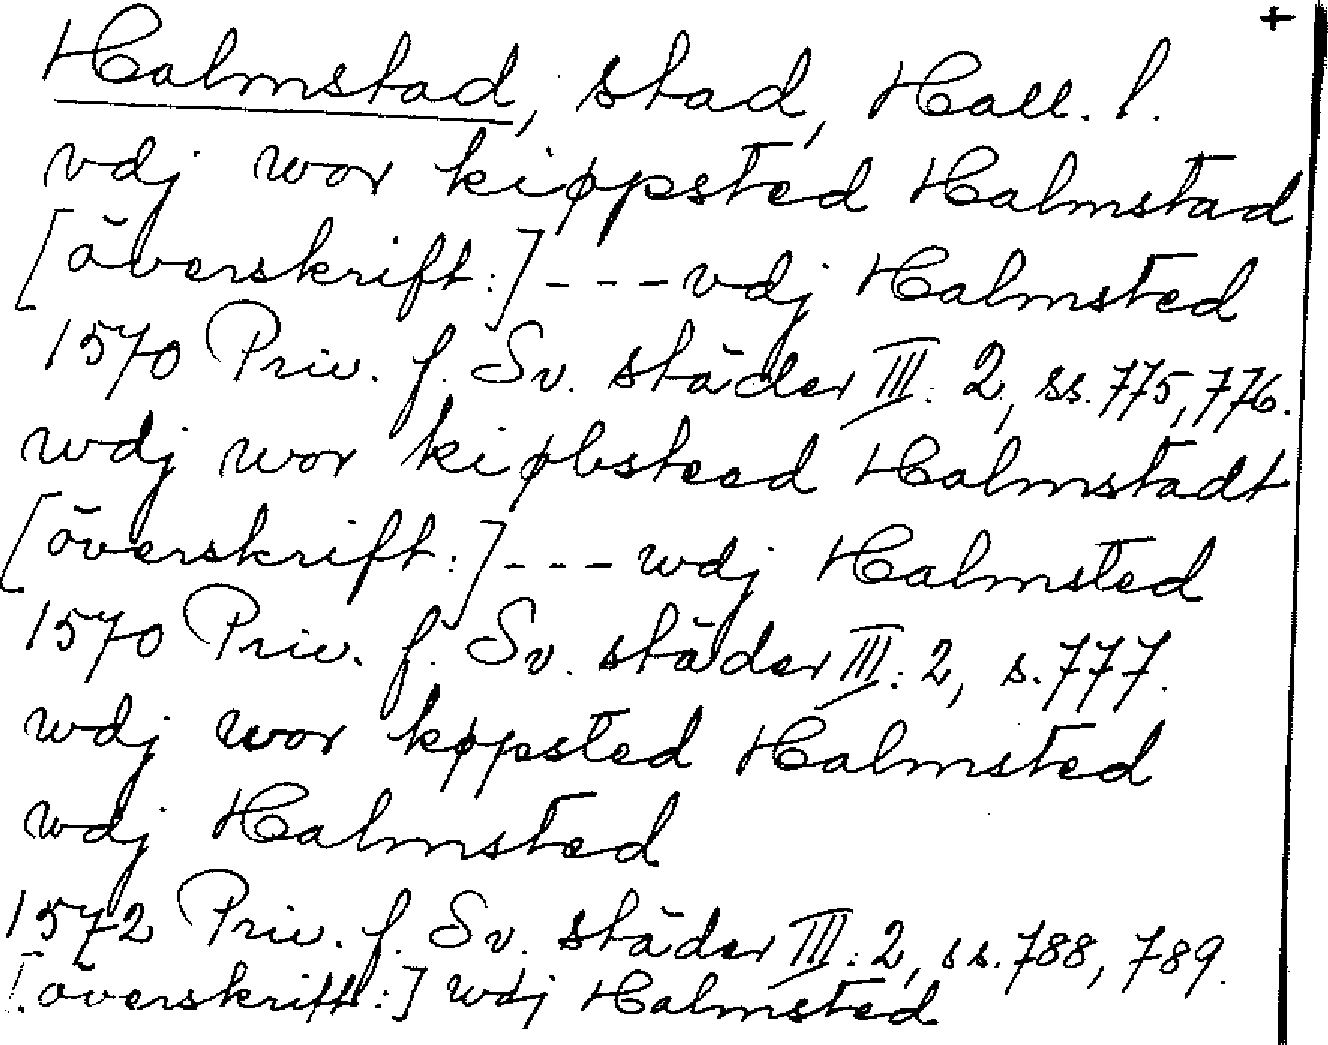 +
Halmstad, stad, Hall. l.
vdj wor kiøppsted Halmstad
[överskrift:] --- vdj Halmsted
1570 Priv. f. Sv. städer III: 2, ss. 775, 776.
wdj wor kiøbstead Halmstadt
[överskrift:] --- wdj Halmsted
1570 Priv. f. Sv. städer III: 2, s. 777.
wdj wor køpsted Halmsted
wdj Halmsted
1572 Priv. f. Sv. städer III: 2, ss. 788, 789.
[överskrift:] wdj Halmsted